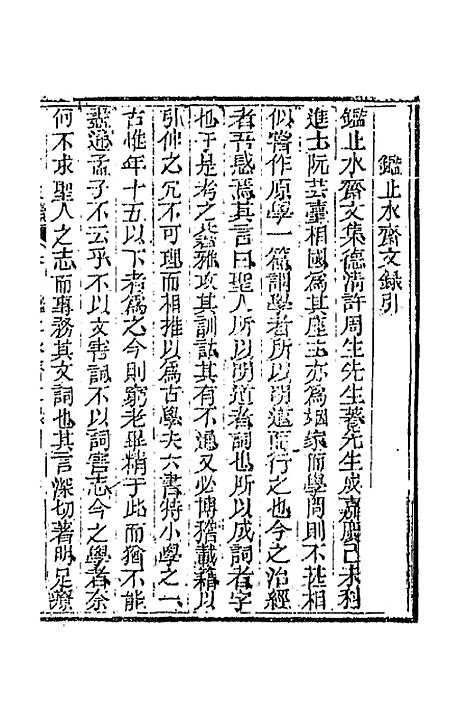 鑑止水齋文錄引
鑑止水齋文集德淸許周生先生著先生成嘉慶己未科
進士阮芸臺相國爲其座主亦爲姻家而學問則不甚相
似嘗作原學一篇謂學者所以明道而行之也今之治經
者吾惑焉其言曰聖人所以明道者詞也所以成詞者字
也于是考之蒼雅攻其訓詁其有不通又必博稽載籍以
引伸之冗不可理而相推以爲古學夫六書特小學之一
古惟年十五以下者爲之今則窮老畢精于此而猶不能
盡通孟子不云乎不以文害詞不以詞害志今之學者奈
何不求聖人之志而專務其文詞也其言深切著明足療